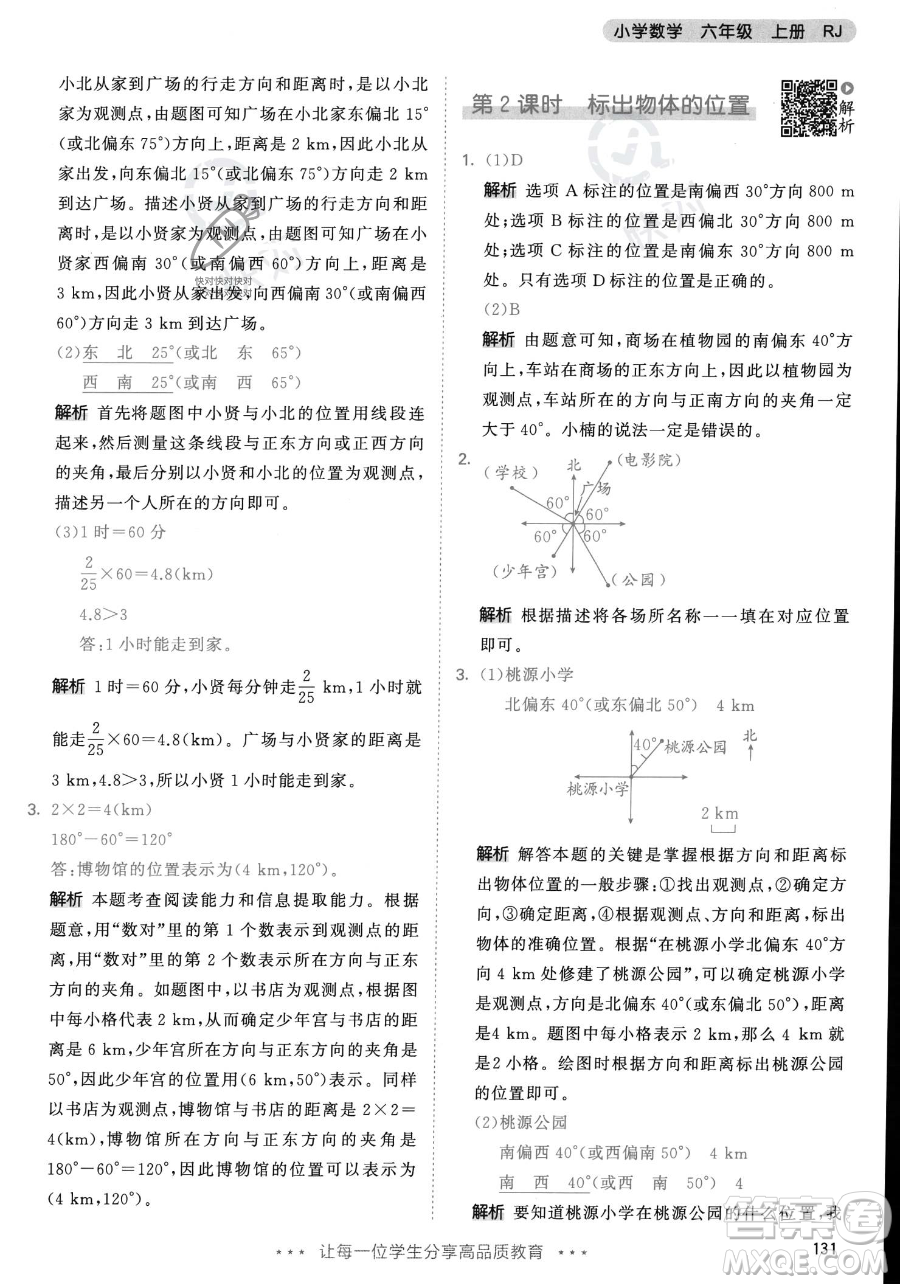 小学数学 六年级 上册 RJ
小北从家到广场的行走方向和距离时,以小北
家为观测点,由题图可知广场在小北家东偏北15°
(或北偏东75°)方向4.5 km处,因此小北从
家出发,向东偏北15°(或北偏东75°)方向走
4.5 km到达广场。描述小贤从家到广场的行走方向和距
离时,以小贤家为观测点,由题图可知广场在小
贤家西偏南30°(或南偏西60°)方向
3 km,因此小贤从家出发,向西偏南30°(或南偏西
60°)方向走3 km到达广场。
(2)东 北 25°(或北 东 65°)
西 南 25°(或南 西 65°)
解析 首先将题图中小贤与小北的位置用线段连
起来,然后测量这条线段与正东方向或正西方向
的夹角,最后分别以小贤和小北的位置为观测点,
描述另一个人所在的方向即可。
(3)1时=60分
2/25×60=4.8(km)
4.8>3
答:1小时能走到家。
解析 1时=60分,小贤每分钟走2/25 km,1小时
能走2/25×60=4.8(km)。广场与小贤家的距离是
3 km,4.8>3,所以小贤1小时能走到家。
3. 2×2=4(km)
180°-60°=120°
答:博物馆的位置表示为(4 km,120°)。
解析 本题考查阅读能力和信息提取能力。根据
题意,用“数对”里的第1个数表示到观测点的距
离,用“数对”里的第2个数表示与观测点的正东
方向的夹角。如题图,以书店为观测点,根据图中
每小格代表2 km,从而确定少年宫与书店的距离
是6 km,少年宫所在方向与正东方向的夹角是
50°,因此少年宫的位置可以表示为(6 km,50°)。同样
以书店为观测点,博物馆与书店的距离是2×2=
4(km),博物馆所在方向与正东方向的夹角是
180°-60°=120°,因此博物馆的位置可以表示为
(4 km,120°)。
第2课时 标出物体的位置
解析
1. (1)D
解析 选项A标注的位置是南偏西30°方向800 m
处;选项B标注的位置是西偏北30°方向800 m
处;选项C标注的位置是南偏东30°方向800 m
处。只有选项D标注的位置是正确的。
(2)B
解析 由题意可知,商场在植物园的南偏东40°方
向上,车站在商场的正东方向上,因此以植物园为
观测点,车站所在方向与正南方向的夹角一定
大于40°。小楠的说法一定是错误的。
2.
(学校)
北
(电影院)
广场
60°
60°
60°
60°
(少年宫)
(公园)
解析 根据描述将各场所名称一一填在对应位置
即可。
3. (1)桃源小学
北偏东40°(或东偏北50°) 4 km
40°
桃源公园
北
桃源小学
2 km
解析 解答本题的关键是掌握根据方向和距离标
出物体位置的一般步骤:①找出观测点,②确定方
向,③确定距离,④根据方向和距离两个条件,标出
物体的准确位置。根据“在桃源小学北偏东40°方向
4 km处修建了桃源公园”,可以确定桃源小学
是观测点,方向是北偏东40°(或东偏北50°),距离
是4 km。题图中每小格表示2 km,那么4 km就
是2小格。绘图时根据方向和距离标出桃源公园
的位置即可。
(2)桃源公园
南偏西40°(或西偏南50°)
南 西 40°(或西 南 50°)
解析 要知道桃源小学在桃源公园的什么位置,我
*** 让每一位学生分享高品质教育 ***
131
快对快对快对
快对快对快对